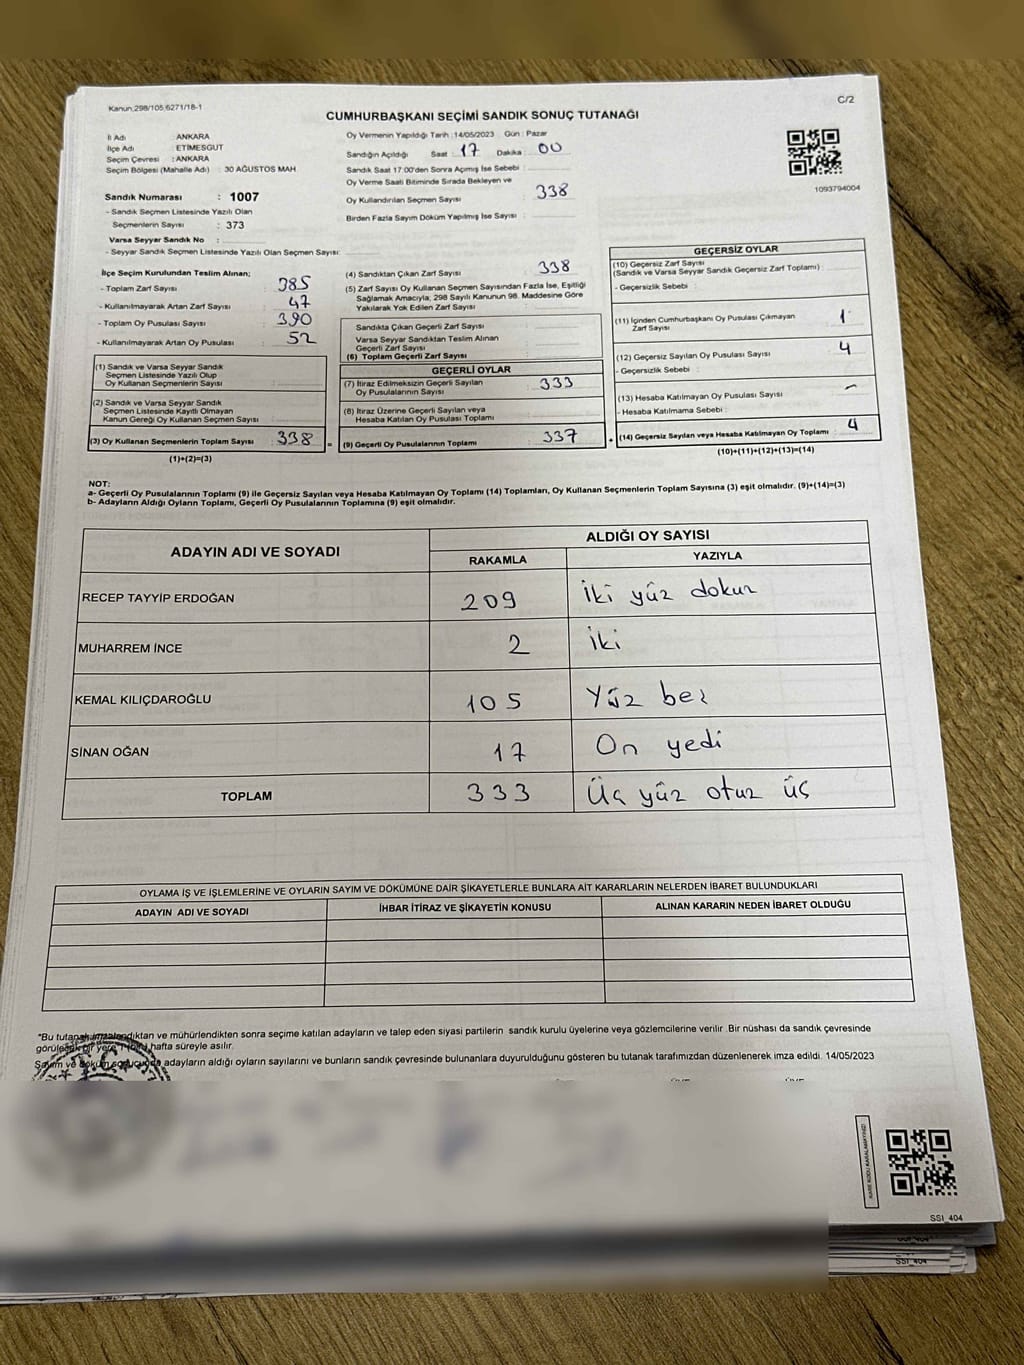 Kanun 298/105,6271/18-1
C/2
CUMHURBAŞKANI SEÇİMİ SANDIK SONUÇ TUTANAĞI
İl Adı ANKARA
İlçe Adı : ETİMESGUT
Seçim Çevresi : ANKARA
Seçim Bölgesi (Mahalle Adı) : 30 AĞUSTOS MAH
Sandık Numarası : 1007
- Sandık Seçmen Listesinde Yazılı Olan
Seçmenlerin Sayısı : 373
Varsa Seyyar Sandık No :
- Seyyar Sandık Seçmen Listesinde Yazılı Olan Seçmen Sayısı:
Oy Vermenin Yapıldığı Tarih : 14/05/2023 Gün : Pazar
Sandığın Açıldığı Saat : 17 Dakika : 00
Sandık Saat 17:00'den Sonra Açılmış İse Sebebi :
Oy Verme Saati Bitiminde Sırada Bekleyen ve
Oy Kullandırılan Seçmen Sayısı : 338
Birden Fazla Sayım Döküm Yapılmış İse Sayısı :
1093794004
İlçe Seçim Kurulundan Teslim Alınan;
- Toplam Zarf Sayısı : 385
- Kullanılmayarak Artan Zarf Sayısı : 47
- Toplam Oy Pusulası Sayısı : 390
- Kullanılmayarak Artan Oy Pusulası : 52
(1) Sandık ve Varsa Seyyar Sandık
Seçmen Listesinde Yazılı Olup
Oy Kullanan Seçmenlerin Sayısı :
(2) Sandık ve Varsa Seyyar Sandık
Seçmen Listesinde Kayıtlı Olmayan
Kanun Gereği Oy Kullanan Seçmen Sayısı :
(3) Oy Kullanan Seçmenlerin Toplam Sayısı : 338 =
(1)+(2)=(3)
(4) Sandıktan Çıkan Zarf Sayısı : 338
(5) Zarf Sayısı Oy Kullanan Seçmen Sayısından Fazla İse, Eşitliği
Sağlamak Amacıyla, 298 Sayılı Kanunun 98. Maddesine Göre
Yakılarak Yok Edilen Zarf Sayısı :
Sandıkta Çıkan Geçerli Zarf Sayısı :
Varsa Seyyar Sandıktan Teslim Alınan
Geçerli Zarf Sayısı :
(6) Toplam Geçerli Zarf Sayısı :
GEÇERLİ OYLAR
(7) İtiraz Edilmeksizin Geçerli Sayılan
Oy Pusulalarının Sayısı : 333
(8) İtiraz Üzerine Geçerli Sayılan veya
Hesaba Katılan Oy Pusulası Toplamı :
(9) Geçerli Oy Pusulalarının Toplamı : 337 +
GEÇERSİZ OYLAR
(10) Geçersiz Zarf Sayısı
(Sandık ve Varsa Seyyar Sandık Geçersiz Zarf Toplamı) :
- Geçersizlik Sebebi :
(11) İçinden Cumhurbaşkanı Oy Pusulası Çıkmayan
Zarf Sayısı : 1
(12) Geçersiz Sayılan Oy Pusulası Sayısı : 4
- Geçersizlik Sebebi :
(13) Hesaba Katılmayan Oy Pusulası Sayısı : -
- Hesaba Katılmama Sebebi :
(14) Geçersiz Sayılan veya Hesaba Katılmayan Oy Toplamı : 4
(10)+(11)+(12)+(13)=(14)
NOT:
a- Geçerli Oy Pusulalarının Toplamı (9) ile Geçersiz Sayılan veya Hesaba Katılmayan Oy Toplamı (14) Toplamları, Oy Kullanan Seçmenlerin Toplam Sayısına (3) eşit olmalıdır. (9)+(14)=(3)
b- Adayların Aldığı Oyların Toplamı, Geçerli Oy Pusulalarının Toplamına (9) eşit olmalıdır.
ADAYIN ADI VE SOYADI ALDIĞI OY SAYISI
RAKAMLA YAZIYLA
RECEP TAYYİP ERDOĞAN 209 İki yüz dokuz
MUHARREM İNCE 2 İki
KEMAL KILIÇDAROĞLU 105 Yüz beş
SİNAN OĞAN 17 On yedi
TOPLAM 333 Üç yüz otuz üç
OYLAMA İŞ VE İŞLEMLERİNE VE OYLARIN SAYIM VE DÖKÜMÜNE DAİR ŞİKAYETLERLE BUNLARA AİT KARARLARIN NELERDEN İBARET BULUNDUKLARI
ADAYIN ADI VE SOYADI İHBAR İTİRAZ VE ŞİKAYETİN KONUSU ALINAN KARARIN NEDEN İBARET OLDUĞU
*Bu tutanak imzalandıktan ve mühürlendikten sonra seçime katılan adayların ve talep eden siyasi partilerin sandık kurulu üyelerine veya gözlemcilerine verilir .Bir nüshası da sandık çevresinde
görülecek bir yere 1 (bir) hafta süreyle asılır.
Sayım ve döküm sonucunda adayların aldığı oyların sayılarını ve bunların sandık çevresinde bulunanlara duyurulduğunu gösteren bu tutanak tarafımızdan düzenlenerek imza edildi. 14/05/2023
SSI_404
SSI_404